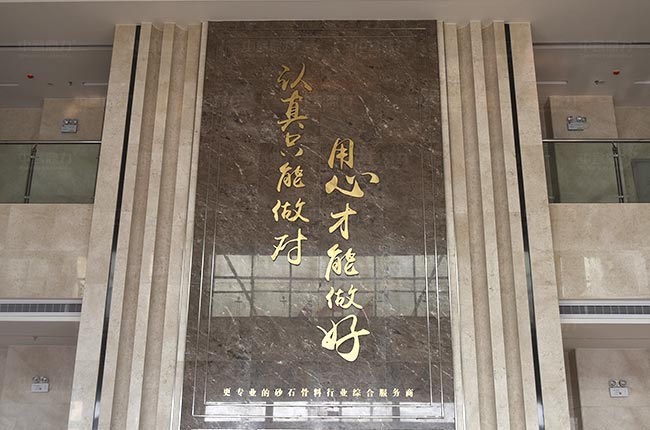 认真只能做对
用心才能做好
更专业的砂石骨料行业综合服务商